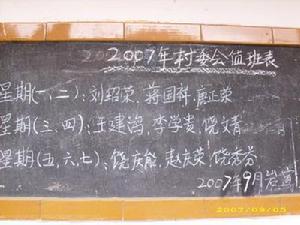 2007年村委会值班表
星期(一、二):刘绍荣、蒋国祥、唐正荣
星期(三、四):王建鸿、李学贵、饶文清
星期(五、六、七):饶庆能、赵启荣、饶秀芬
2007年9月
2007/09/05